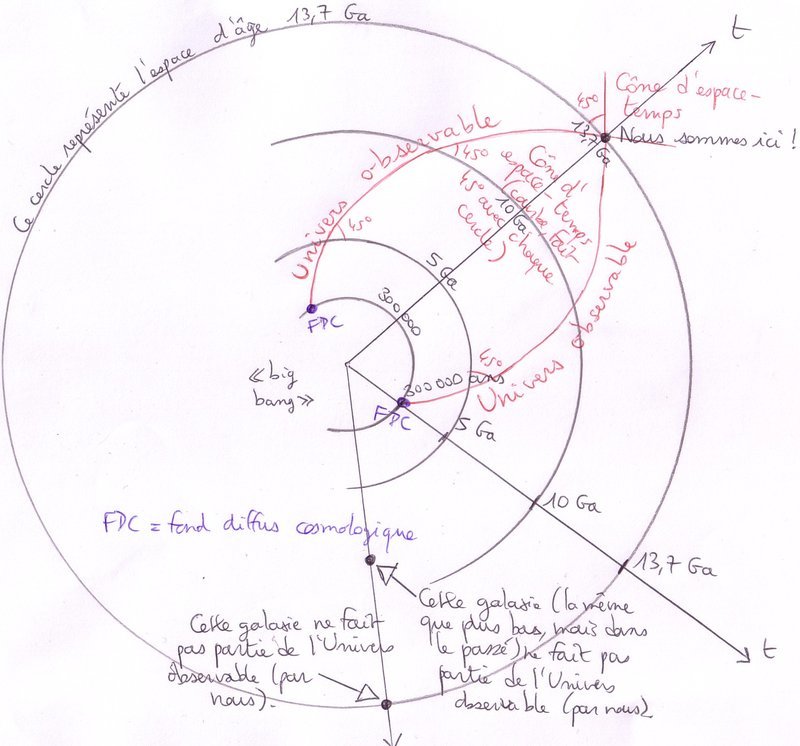 Ce cercle représente l'espace d'âge 13,7 Ga
t
45°
Cône d'espace-
temps
13,7 Ga
Nous sommes ici !
Univers observable
45°
45°
Cône d'
espace-temps
(courbe fait
45° avec chaque
cercle)
10 Ga
5 Ga
300 000
FDC
Univers observable
45°
« big
bang »
300 000 ans
FDC
5 Ga
10 Ga
13,7 Ga
t
FDC = fond diffus cosmologique
Cette galaxie ne fait
pas partie de l'Univers
observable (par
nous).
Cette galaxie (la même
que plus bas, mais dans
le passé) ne fait pas
partie de l'Univers
observable (par nous)